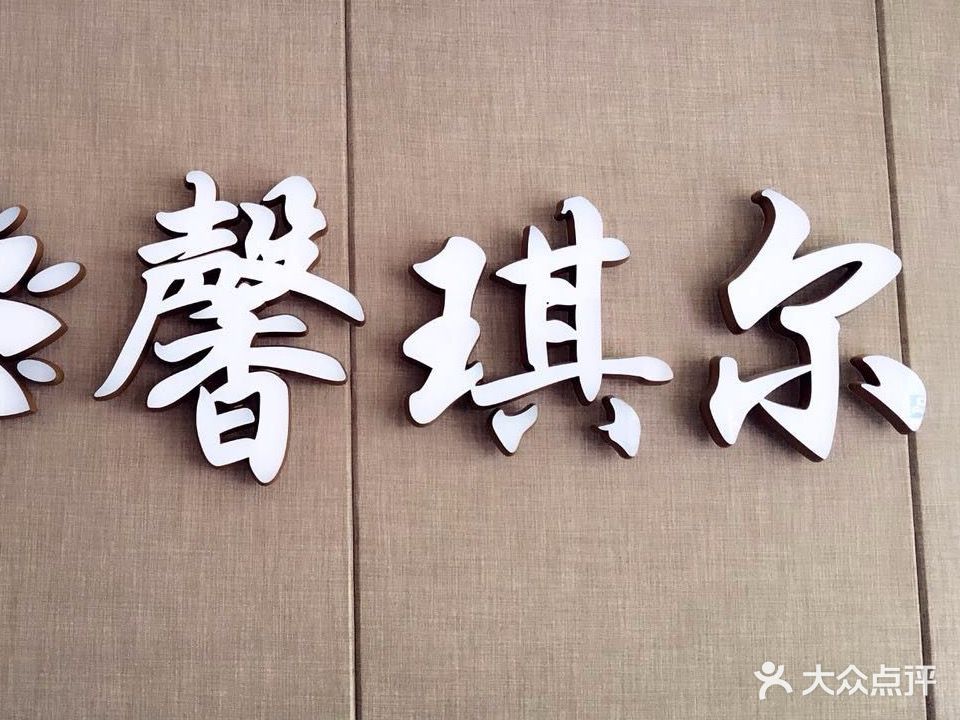 馨琪尔
大众点评